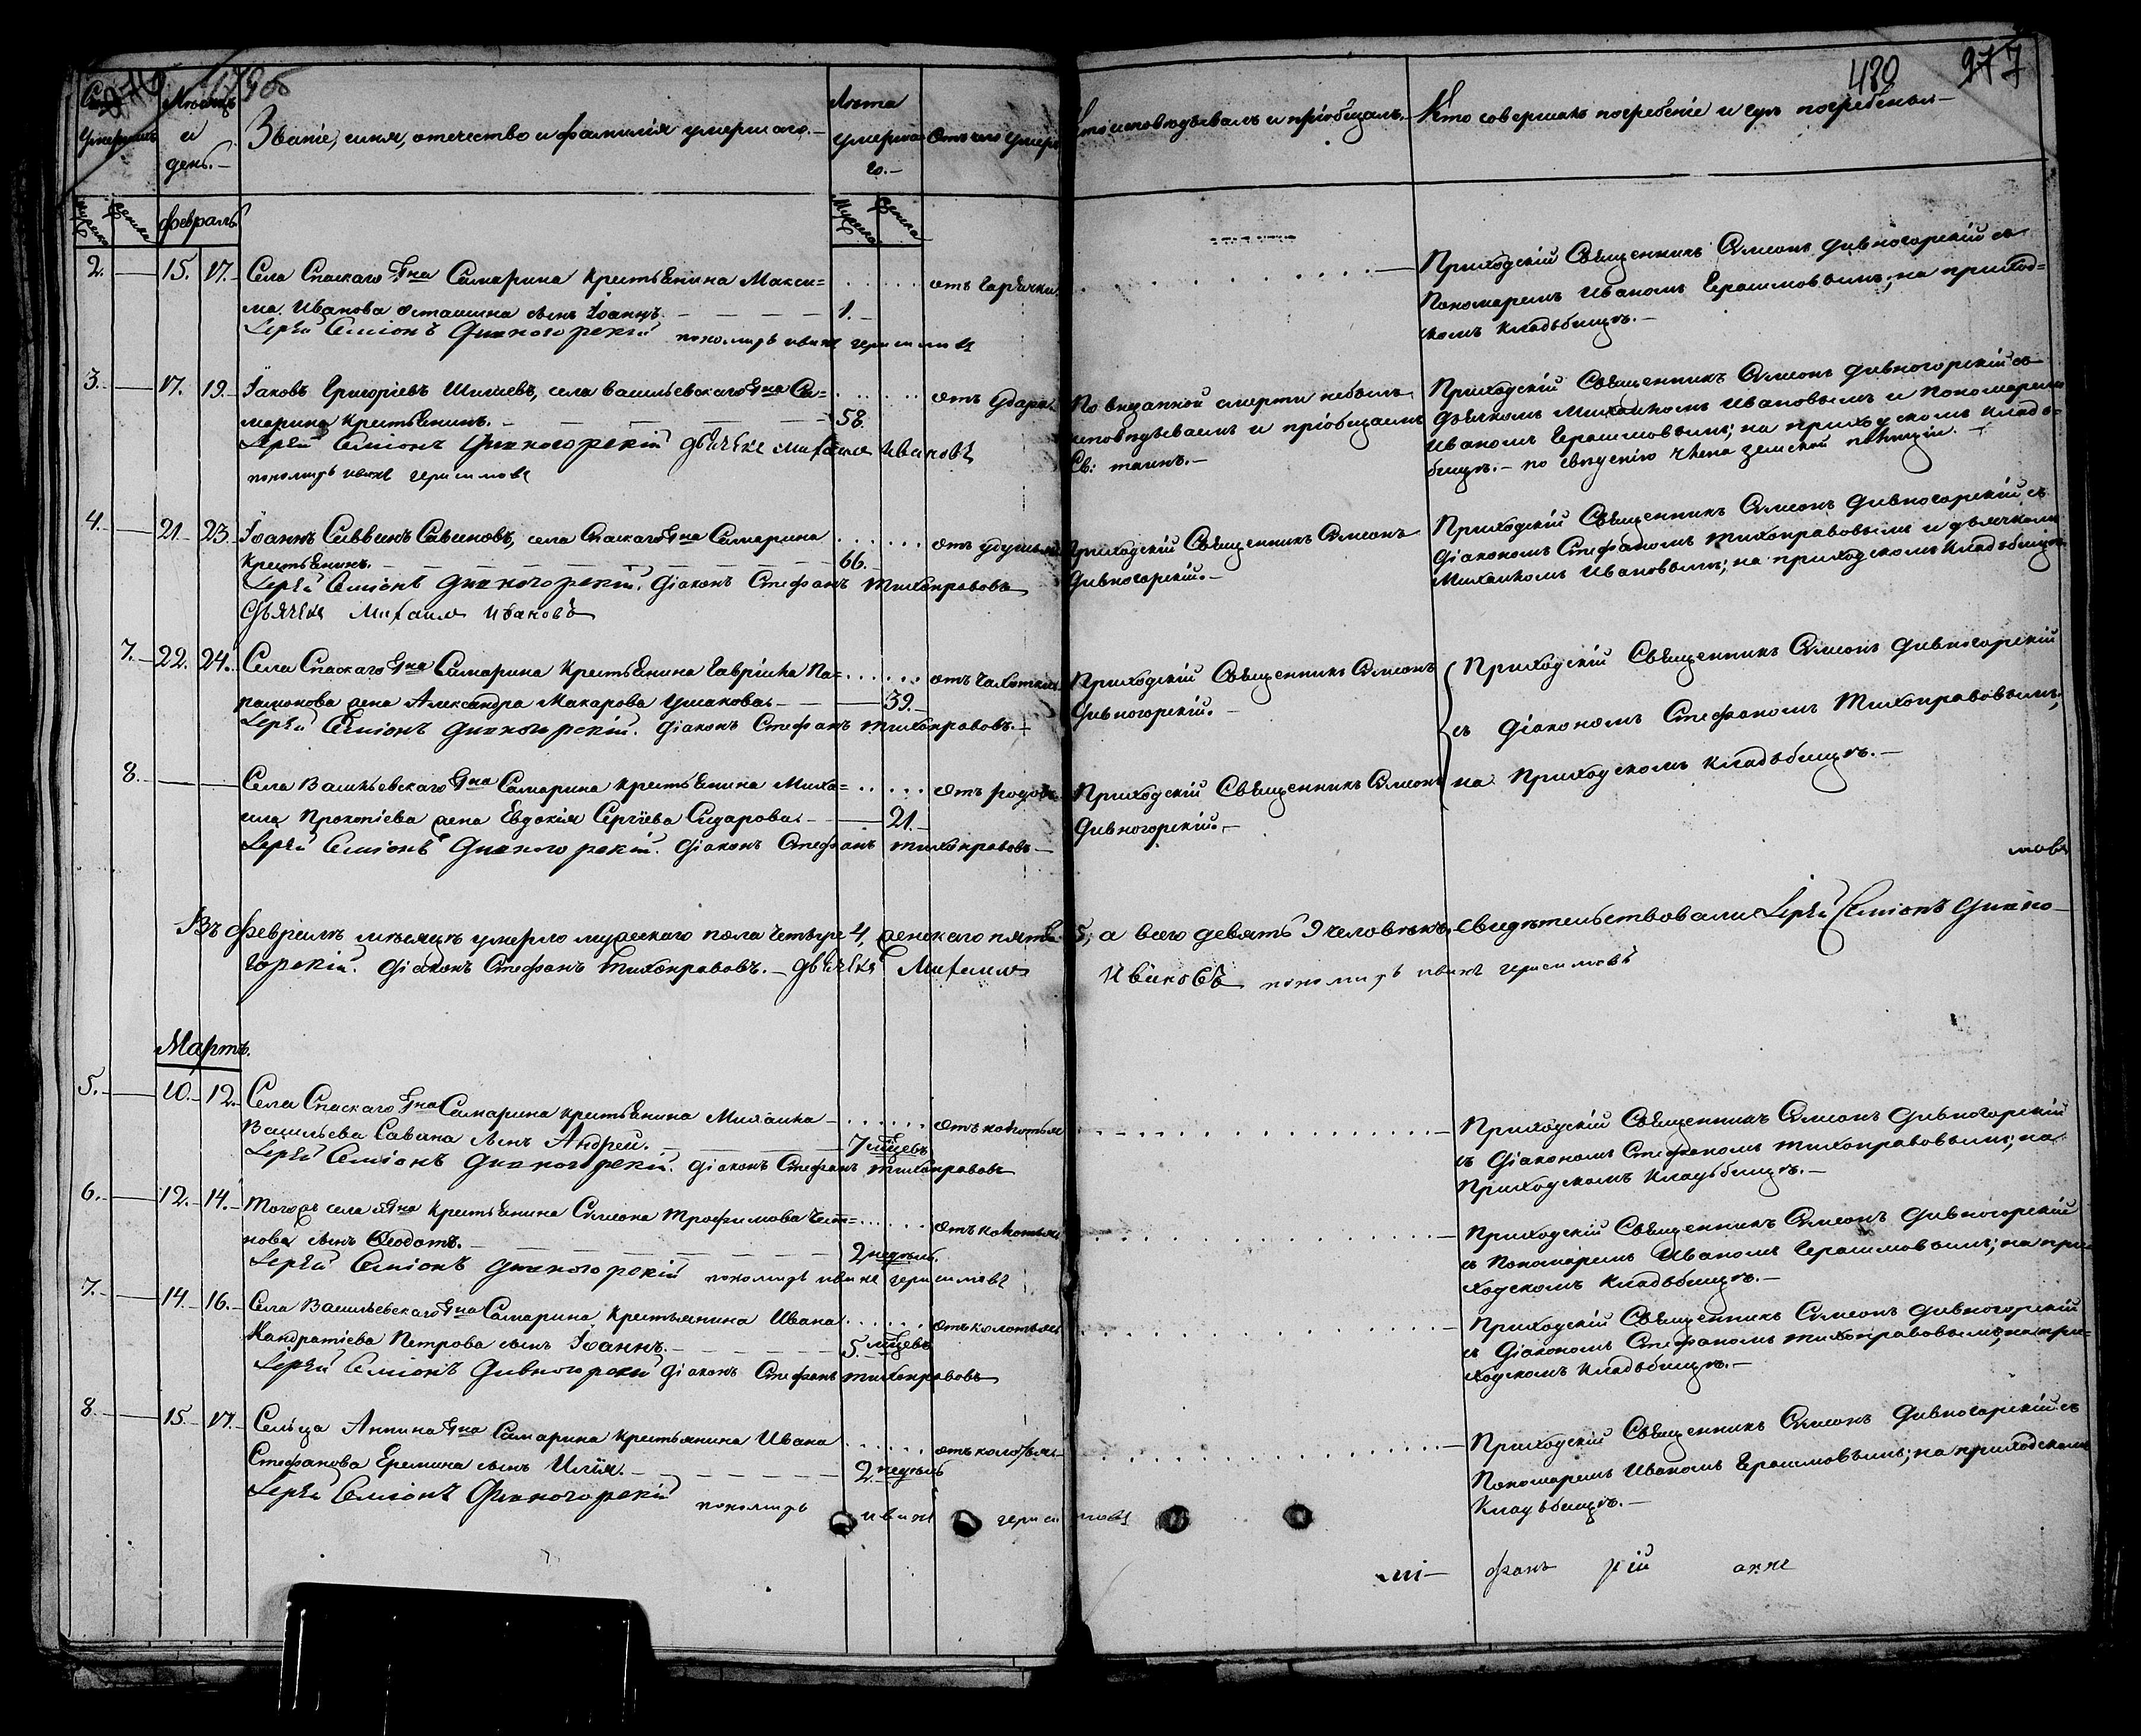 480 277
Счетъ умершихъ
Мѣсяцъ и день.
Званіе, имя, отечество и фамилія умершаго.
Лѣта умершаго.
Отъ чего умеръ
Кто исповѣдывалъ и пріобщалъ.
Кто совершалъ погребеніе и гдѣ погребены
Мужеска Женска
Февраль
Мужеска Женска
2. 15. 17. Села Спаскаго Гна Самарина Крестьянина Макси=
ма Иванова Осташина сынъ Іоаннъ. 1. отъ горячки
Іерей Симіонъ Дивногорскій пономарь иванъ герасимовъ
Приходскій Священникъ Симеонъ Дивногорскій съ
Пономаремъ Иваномъ Герасимовымъ; на приход=
скомъ кладьбищѣ.
3. 17. 19. Іаковъ Григорьевъ Шишевъ, села васильевскаго Гна Са=
марина Крестьянинъ. 58. отъ удара
Іерей Симіонъ Дивногорскій дьячекъ михаилъ Ивановъ
пономарь иванъ герасимовъ
По внезапной смерти небылъ
исповѣдываемъ и пріобщаемъ
Св: таинъ.
Приходскій Священникъ Симеонъ Дивногорскій съ
Дьячкомъ Михаиломъ Ивановымъ и Пономаремъ
Иваномъ Герасимовымъ; на приходскомъ кладь=
бищѣ. по свѣденію члена земской полиціи.
4. 21. 23. Іоаннъ Саввинъ Савиновъ, села Спаскаго Гна Самарина
Крестьянинъ. 66. отъ удушья
Іерей Симіонъ Дивногорскій. Діаконъ Стефанъ Тихонравовъ
Дьячекъ Михаилъ Ивановъ
Приходскій Священникъ Симеонъ
Дивногорскій.
Приходскій Священникъ Симеонъ Дивногорскій съ
Діакономъ Стефаномъ Тихонравовымъ и дьячкомъ
Михаиломъ Ивановымъ; на приходскомъ кладьбищѣ.
7. 22. 24. Села Спаскаго Гна Самарина Крестьянина Гавріила Па=
рамонова жена Александра Макарова Ушакова. 39. отъ чахотки
Іерей Симіонъ Дивногорскій. Діаконъ Стефанъ Тихонравовъ.
Приходскій Священникъ Симеонъ
Дивногорскій.
Приходскій Священникъ Симеонъ Дивногорскій
съ Діакономъ Стефаномъ Тихонравовымъ;
на Приходскомъ кладьбищѣ.
8. Села Васильевскаго Гна Самарина Крестьянина Миха=
ила Прокопіева жена Евдокія Сергіева Сидарова. 21. отъ родовъ
Іерей Симіонъ Дивногорскій. Діаконъ Стефанъ Тихонравовъ
Приходскій Священникъ Симеонъ
Дивногорскій.
Въ Февралѣ мѣсяцѣ умерло мужескаго пола четыре 4, женскаго пять 5; а всего девять 9 человѣкъ. Свидѣтельствовали Іерей Симіонъ Дивно
горскій. Діаконъ Стефанъ Тихонравовъ. Дьячекъ Михаилъ Ивановъ пономарь иванъ герасимовъ
Мартъ.
5. 10. 12. Села Спаскаго Гна Самарина Крестьянина Михаила
Васильева Савина сынъ Андрей. 7 мцевъ отъ колотья
Іерей Симіонъ Дивногорскій. Діаконъ Стефанъ Тихонравовъ
Приходскій Священникъ Симеонъ Дивногорскій
съ Діакономъ Стефаномъ Тихонравовымъ; на
Приходскомъ кладьбищѣ.
6. 12. 14. Тогожъ села Гна Крестьянина Симеона Трофимова Чет=
нова сынъ Ѳеодотъ. 2 недѣль. отъ колотья
Іерей Симіонъ Дивногорскій пономарь иванъ герасимовъ
Приходскій Священникъ Симеонъ Дивногорскій
съ Пономаремъ Иваномъ Герасимовымъ; на при=
ходскомъ кладьбищѣ.
7. 14. 16. Села Васильевскаго Гна Самарина Крестьянина Ивана
Кандратіева Петрова сынъ Іоаннъ. 5. мцевъ отъ колотья
Іерей Симіонъ Дивногорскій Діаконъ Стефанъ Тихонравовъ
Приходскій Священникъ Симеонъ Дивногорскій
съ Діакономъ Стефаномъ Тихонравовымъ; на при=
ходскомъ кладьбищѣ.
8. 15. 17. Сельца Аннина Гна Самарина Крестьянина Ивана
Стефанова Еремина сынъ Илія. 2. недѣль отъ колотья
Іерей Симіонъ Дивногорскій пономарь иванъ герасимовъ
Приходскій Священникъ Симеонъ Дивногорскій съ
Пономаремъ Иваномъ Герасимовымъ; на приходскомъ
кладьбищѣ.